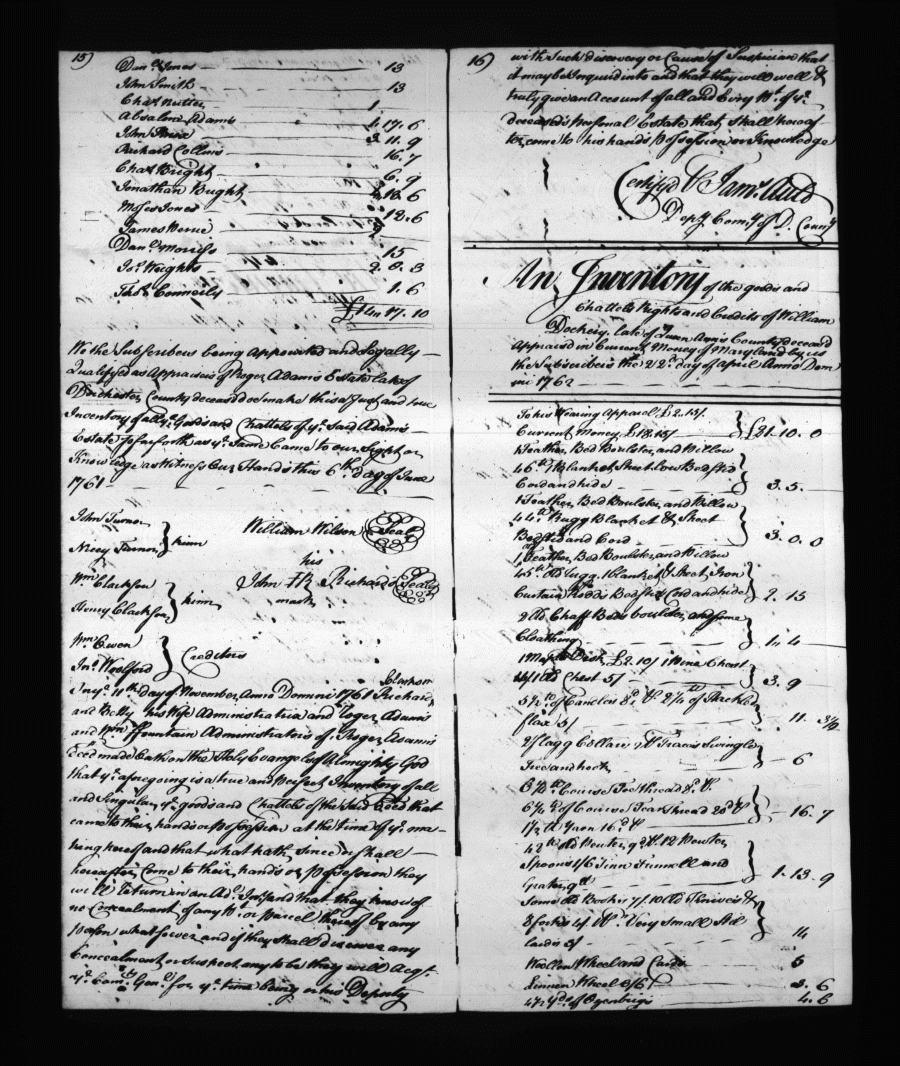 15)
Danl. Jones 13
John Smith 13
Chas. Nutter 1
Absalom Adams 4. 17. 6
John 11. 9
Richard Collins 16. 7
Chas. Bright 6. 9
Jonathan Bught 16. 6
Moses Jones 12. 6
James
Danl. Morriss 15
Jos. Wrights 2. 8. 3
Thos. Connelly 1. 6
17. 10
We the Subscribers being Appointed and Legally
Qualifyed as Appraisers of Roger Adams Estate late of
Dorchester County deceased do make this a Just and true
Inventory of all ye. Goods and Chattels of ye. Said Adams
Estate So far forth as ye. Same Came to our Sight or
Knowledge as Witness Our Hands this 6th. day of June
1761
John Turner
Nicey Turner } kinn
William Wilson Seal
his
John Richards Seal
mark
Wm. Clarkson
Henry Clarkson } kinn
Wm. Owen
Jno. Woolford } Creditors
Clarkson
11th. Day of November Anno Domini 1761 Richard
and Betty his Wife Administratrix and Roger Adams
and Wm. Fountain Administrators of Roger Adams
Deced made Oath on the Holy Evangels of Almighty God
that ye. aforegoing is a true and Perfect Inventory of all
and Singular ye. goods and Chattels of the said Deced that
came to their hands or Possession at the time of ye. ma-
king hereof and that what hath since or shall
hereafter Come to their hands or Possession they
will return in an Adl. Inv. and that they know of
no Concealment of any Pt. or parcel thereof by any
Person whatsoever and if they shall discover any
Concealment or suspect any to be they will Acqt.
ye. Comy. Genl. for ye. time being or his Deputy
16)
with such discovery or Cause of Suspicion that
it may be Inquired into and that they will well &
truly give an Account of all and Every Pt. of ye.
deceased's Personal Estate that shall hereaf-
ter come to his hands Possession or Knowledge
Certifyd Auld
Depy Comy of D. County
An Inventory of the goods and
Chattels Rights and Credits of William
Dockery late of Queen Ann's County deceased
Appraised in Current Money of Maryland by us
the Subscribers the 22d. day of April Anno Dom
ini 1762
To his Wearing Apparel £2.15/
Current Money £18.15/ } £21. 10. 0
1 Feather Bed Boulster and Pillow
46 lb 1 Blanket Sheet Cow Bedsted
Cord and hide } 3. 5.
1 Feather Bed Boulster and Pillow
44 lb. Rugg Blanket & Sheet
Bedsted and Cord } 3. 0. 0
1 Feather Bed Boulster and Pillow
45 lb. old Rugg 1 blanket & Sheet Iron
Curtain Rodds Bedsted Cord and hide } 2. 15
2 Old Chaff Beds boulster and some
Cloathing 1. 4
1 £2.10/ 1 Pine Chest
1 Old Chest 5/ } 3. 9
5 1/2 lb. of Candles 8d. & 2 1/4 lb of Hackled
flax 5/ } 11. 3 1/2
2 flagg Collars Traces Swingle
Tree and hook 6
Course Tow thread
6 1/2 lb of Course Tow thread 20d
1 1/2 lb Yarn 16d } 16. 7
42 lb old Pewter 9d. 12 Pewter
Spoons 1/6 Tinn Funnell and
Grater 9d } 1. 13. 9
Some old Books 7/ 10 Old Knives &
8 forks 4/ Very Small Stil
lards 3/ } 14
Woollen Wheel and Cards 5
Linnen Wheel 8/6 8. 6
4 1/2 yds. of Ozenbrigs 4. 6